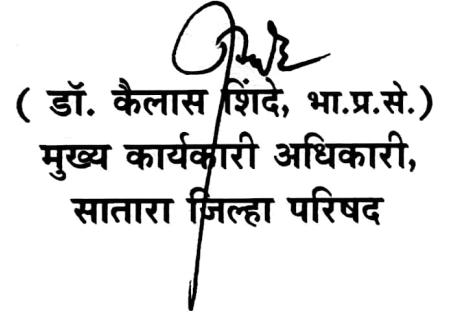 ( डॉ. कैलास शिंदे, भा.प्र.से.)
मुख्य कार्यकारी अधिकारी,
सातारा जिल्हा परिषद